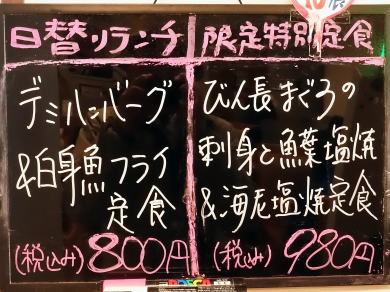 日替リランチ
デミハンバーグ
&白身魚フライ
定食
(税込み)800円
限定特別定食
びん長まぐろの
刺身と魚葉塩焼
&海老塩焼定食
(税込み)980円